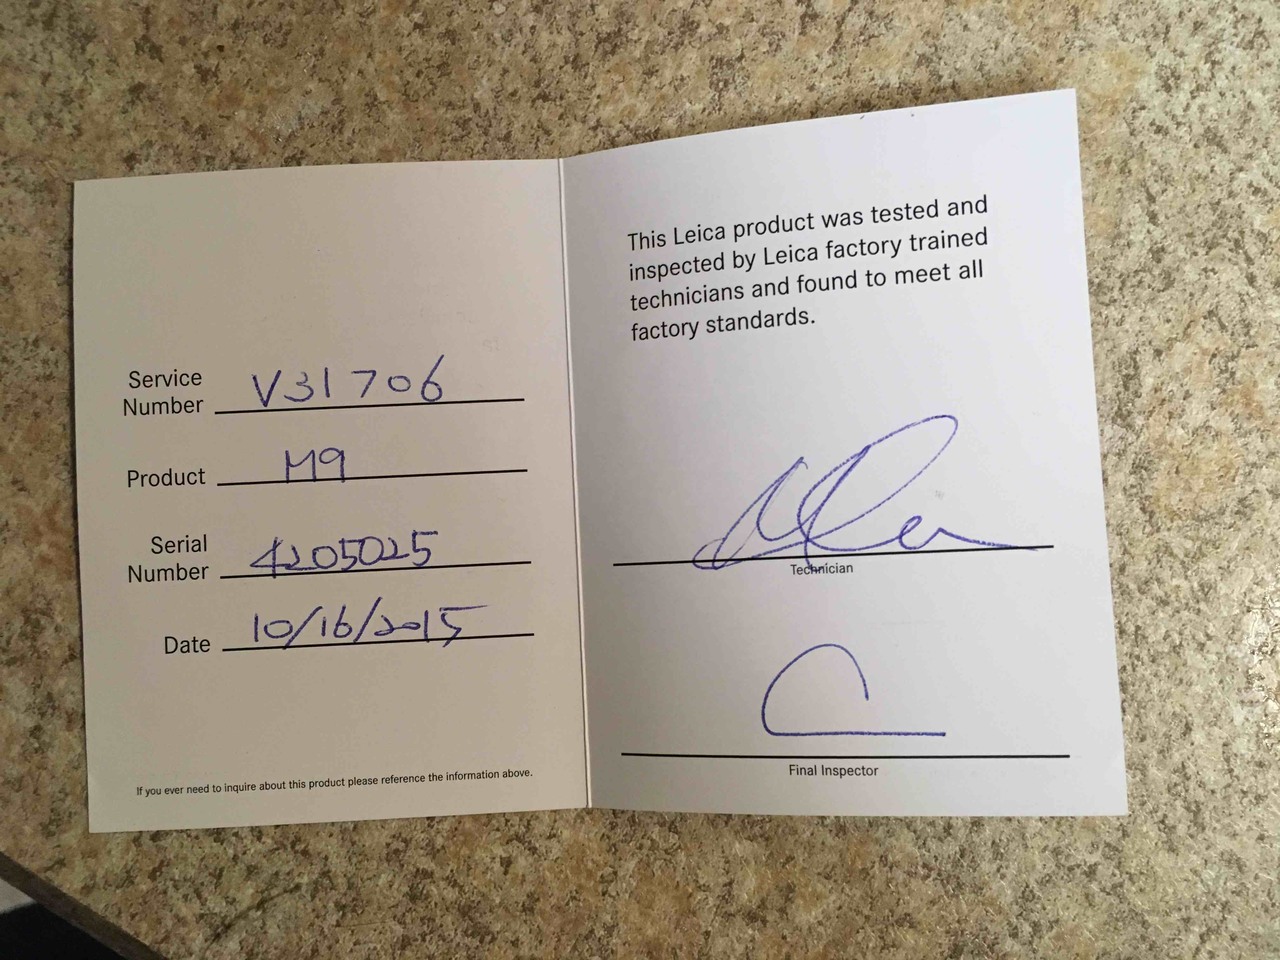 Service
Number V31706
Product M9
Serial
Number 4205025
Date 10/16/2015
If you ever need to inquire about this product please reference the information above.
This Leica product was tested and
inspected by Leica factory trained
technicians and found to meet all
factory standards.
Technician
Final Inspector